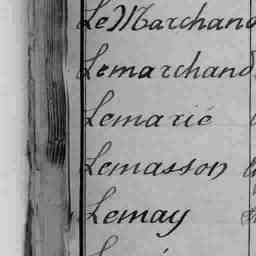 LeMarchand
Lemarchand
Lemarié
Lemasson
Lemay